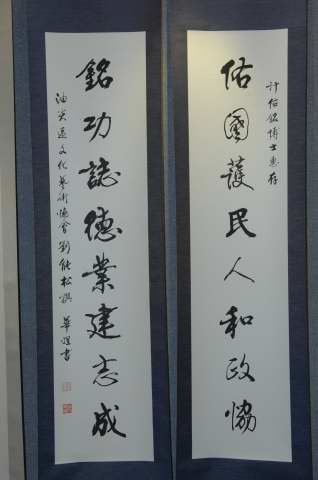 許佑銘博士惠存
佑國護民人和政協
銘功誌德業建志成
油尖區文化藝術協會劉能松撰 華煌書